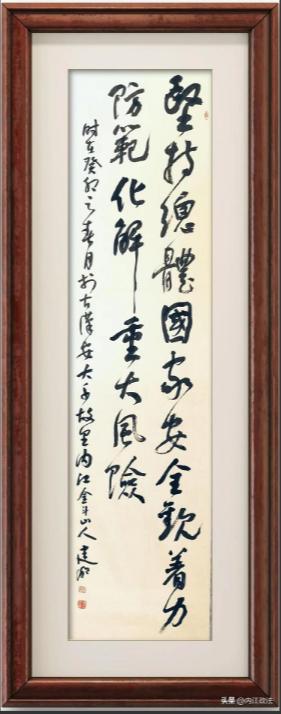 堅持總體國家安全觀着力
防範化解重大風險
時在癸卯之春月於古漢安大千故里内江金牛山人建
头条@内江政法